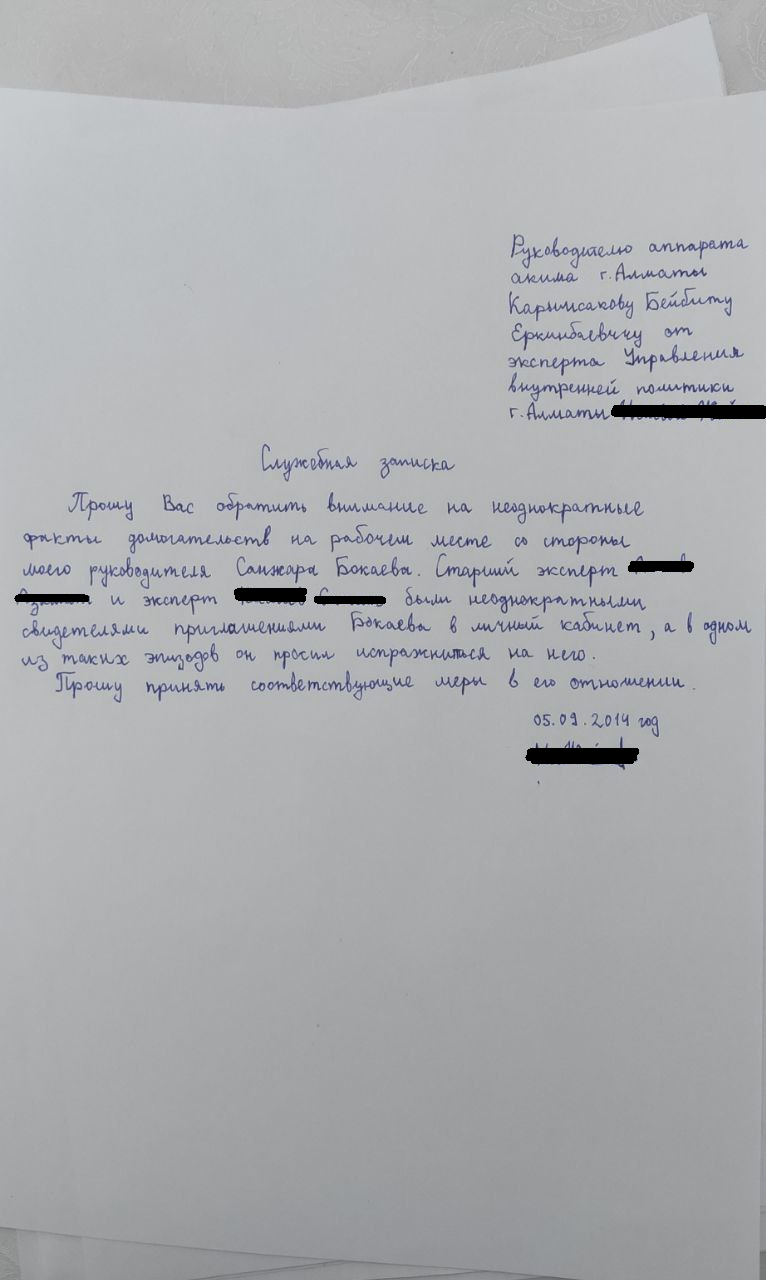 Руководителю аппарата
акима г. Алматы
Карымсакову Бейбиту
Еркинбаевичу от
эксперта Управления
внутренней политики
г. Алматы
Служебная записка
Прошу Вас обратить внимание на неоднократные
факты домогательств на рабочем месте со стороны
моего руководителя Санжара Бокаева. Старший эксперт
и эксперт были неоднократными
свидетелями приглашениями Бокаева в личный кабинет, а в одном
из таких эпизодов он просил испражниться на него.
Прошу принять соответствующие меры в его отношении.
05.09.2014 год